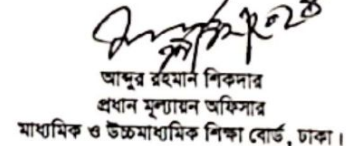 আব্দুর রহমান শিকদার
প্রধান মূল্যায়ন অফিসার
মাধ্যমিক ও উচ্চমাধ্যমিক শিক্ষা বোর্ড, ঢাকা।